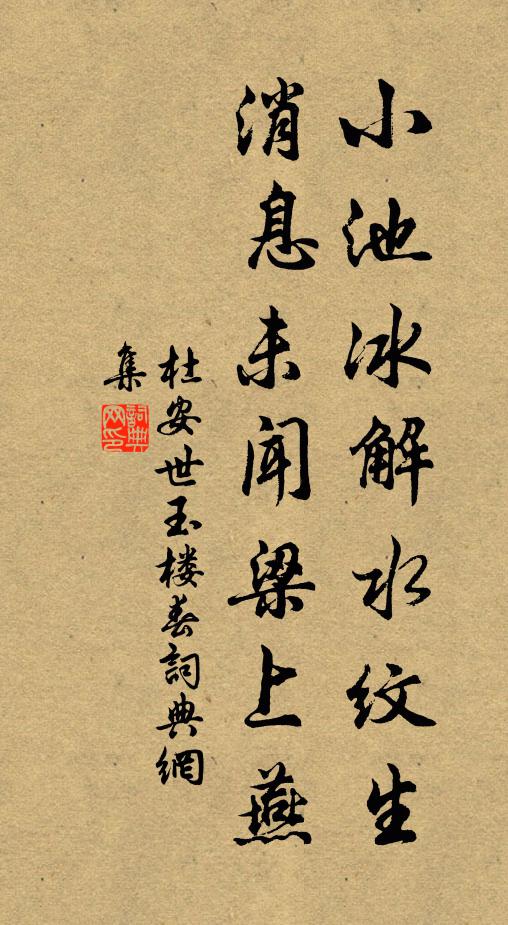 小池冰解水纹生
消息未闻梁上燕
杜安世玉楼春詞典網
集
詞典网印